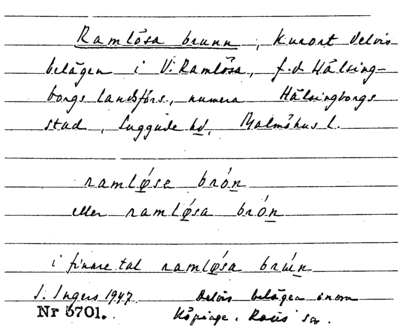 Ramlösa brunn, Kurort delvis
belägen i V. Ramlösa, f.d. Hälsing-
borgs landsförs., numera Hälsingborgs
stad, Luggude hd, Malmöhus l.
ramlǿse brón
eller ramlǿsa brón
i finare tal ramlǿsa brún
I. Ingers 1947.
Delvis belägen inom
Nr 5701.
Köpinge, Raus sn.